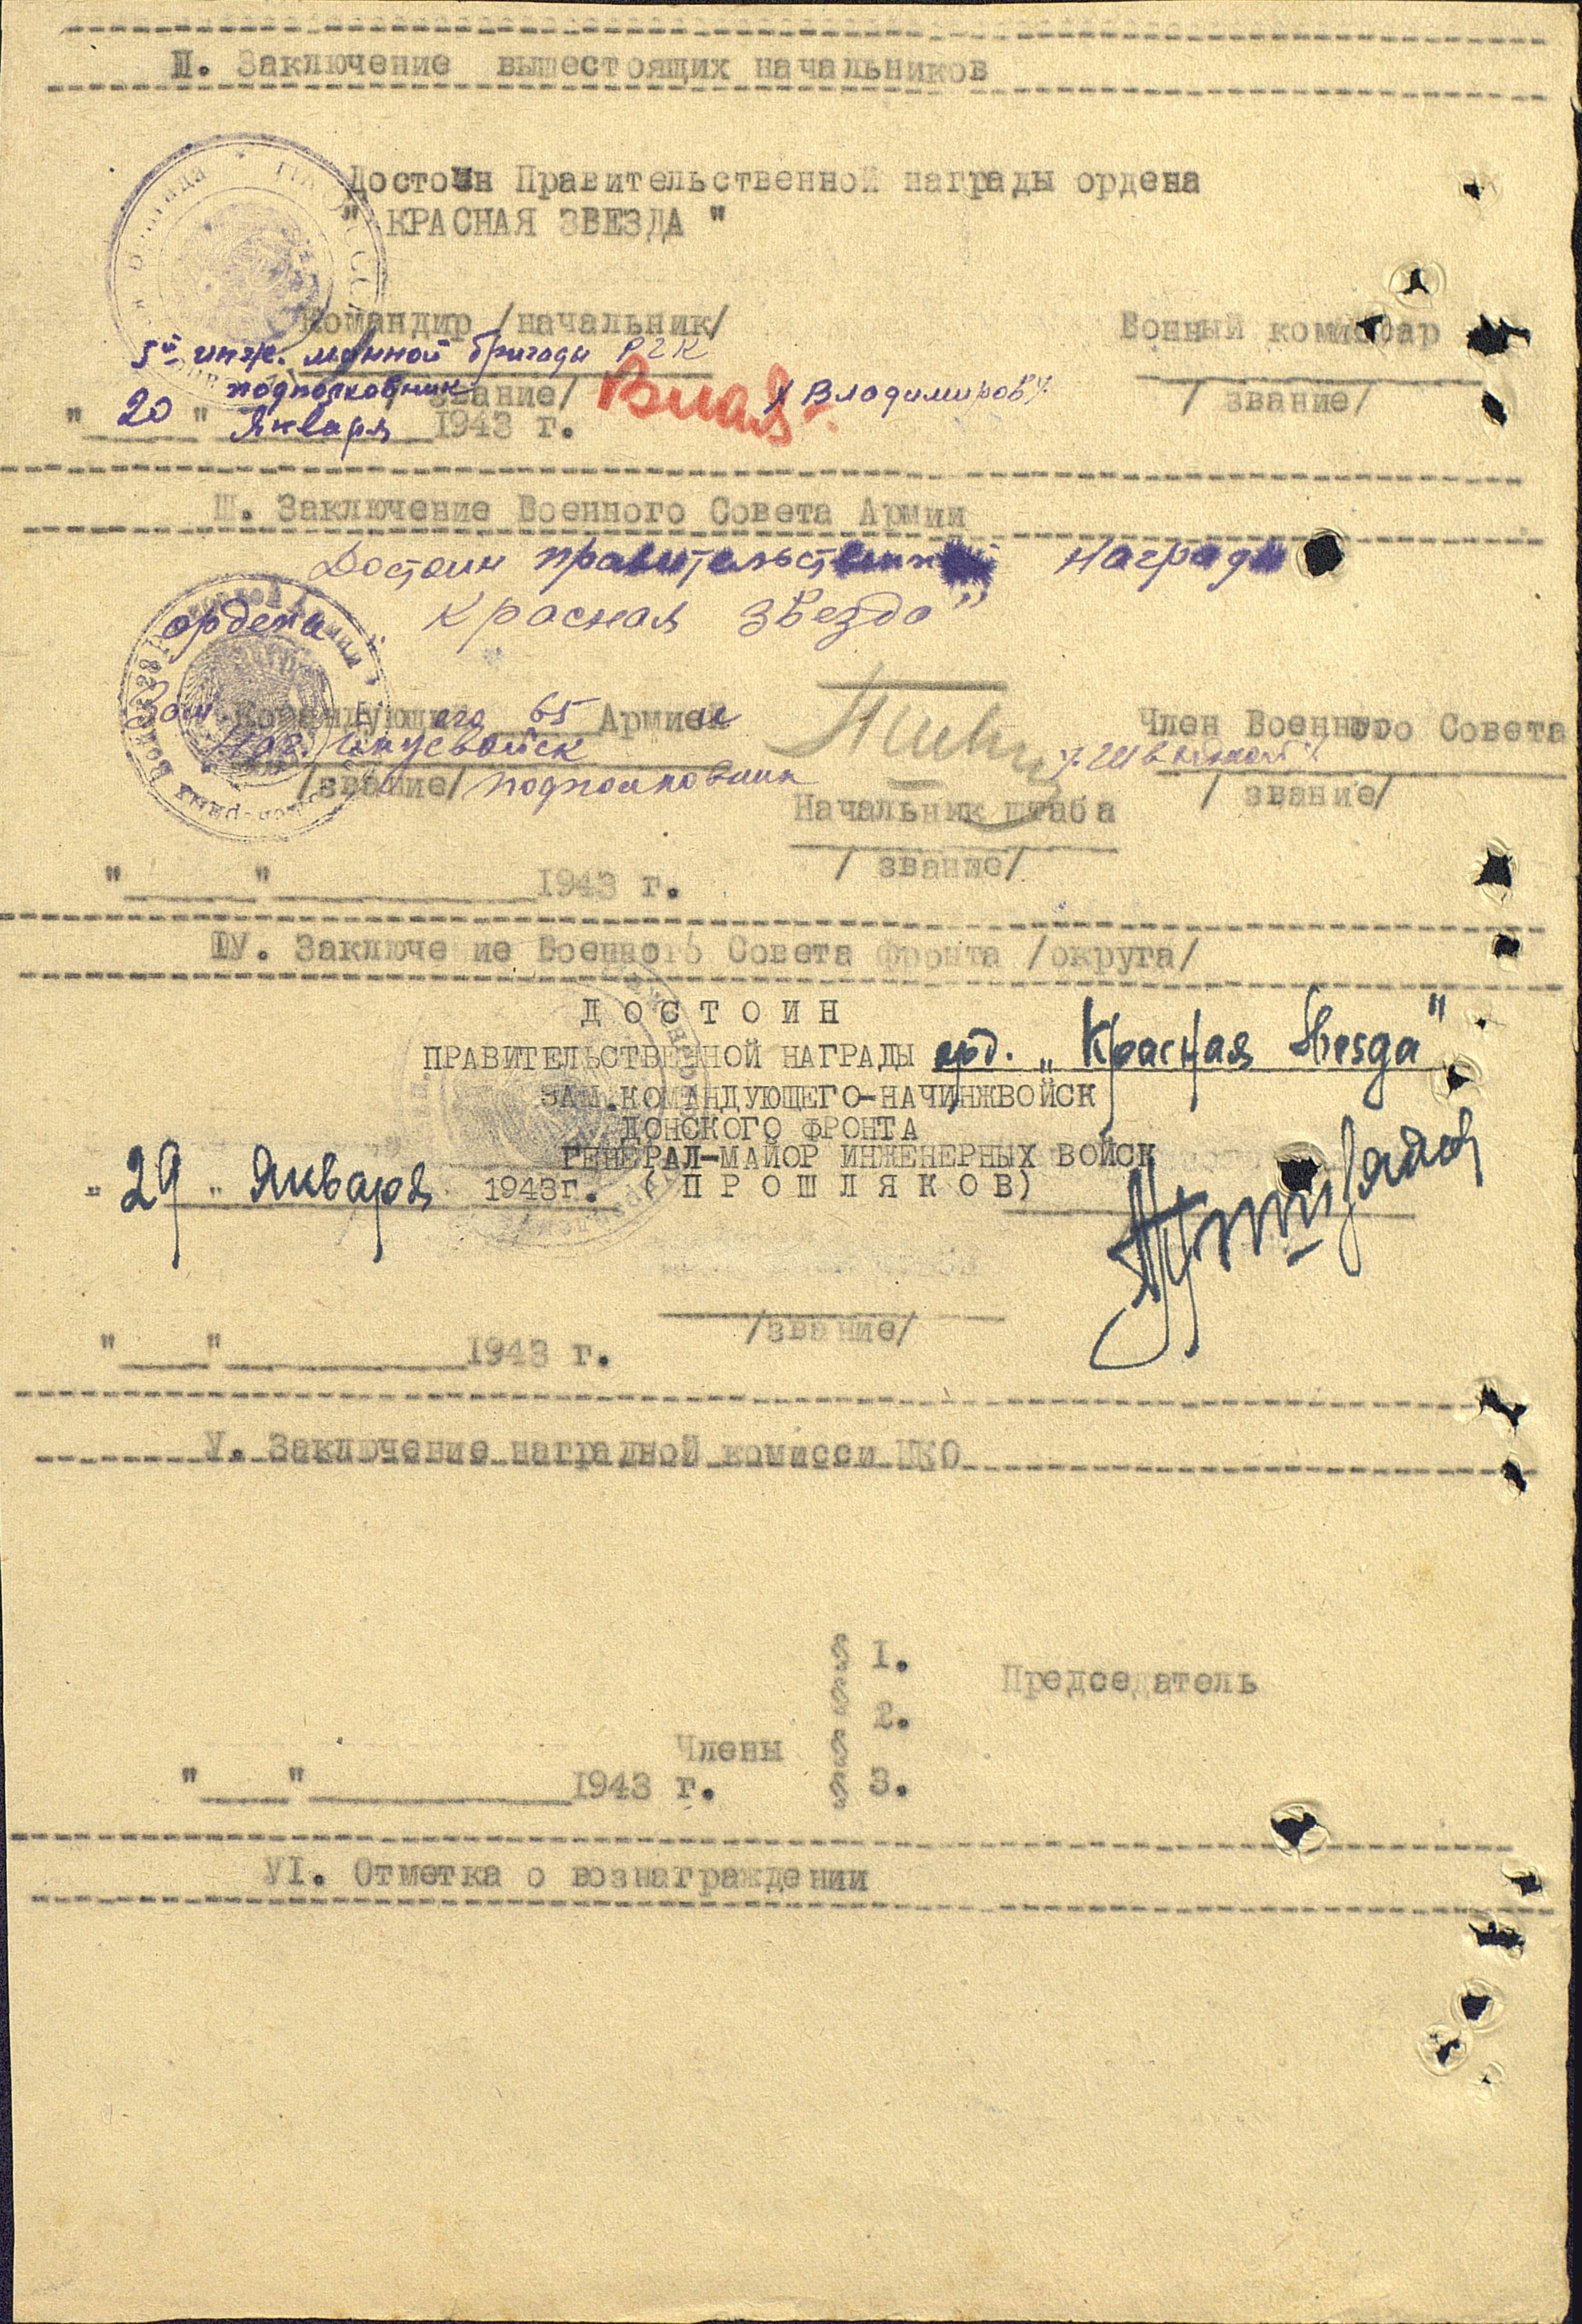 II. Заключение вышестоящих начальников
Достоин Правительственной награды ордена
" КРАСНАЯ ЗВЕЗДА "
Командир /начальник/
Вонный комиссар
5й инж. минной бригады РГК
подполковник
/звание/
Влад
/Владимиров/
/ звание/
"20" Января 1943 г.
Ш. Заключение Военного Совета Армии
Достоин правительственной награды
ордена "Красная Звезда"
Зам. Командующего 65 Армией
Член Военного Совета
Нач. инжвойск
/звание/ подполковник
/ звание/
Начальник штаба
/ звание/
"____"__________1943 г.
IУ. Заключе ие Военного Совета фронта /округа/
ДОСТОИН
ПРАВИТЕЛЬСТВЕННОЙ НАГРАДЫ орд. „Красная Звезда"
ЗАМ.КОМАНДУЮЩЕГО-НАЧИНЖВОЙСК
ДОНСКОГО ФРОНТА
ГЕНЕРАЛ-МАЙОР ИНЖЕНЕРНЫХ ВОЙСК
"29" Января 1943г. (ПРОШЛЯКОВ)
/звание/
"____"__________1943 г.
У. Заключение наградной комисси НКО
1.
Председатель
2.
Члены
"____"__________1943 г.
3.
УI. Отметка о вознаграждении